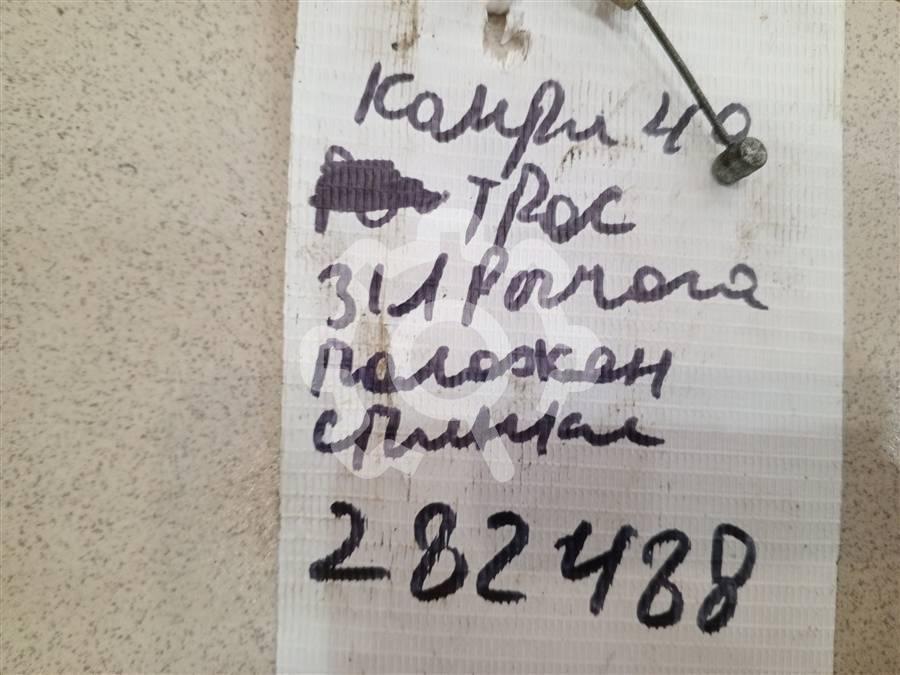 Камри 40
трос
ЗЛ Рычага
положен
спинки
282488